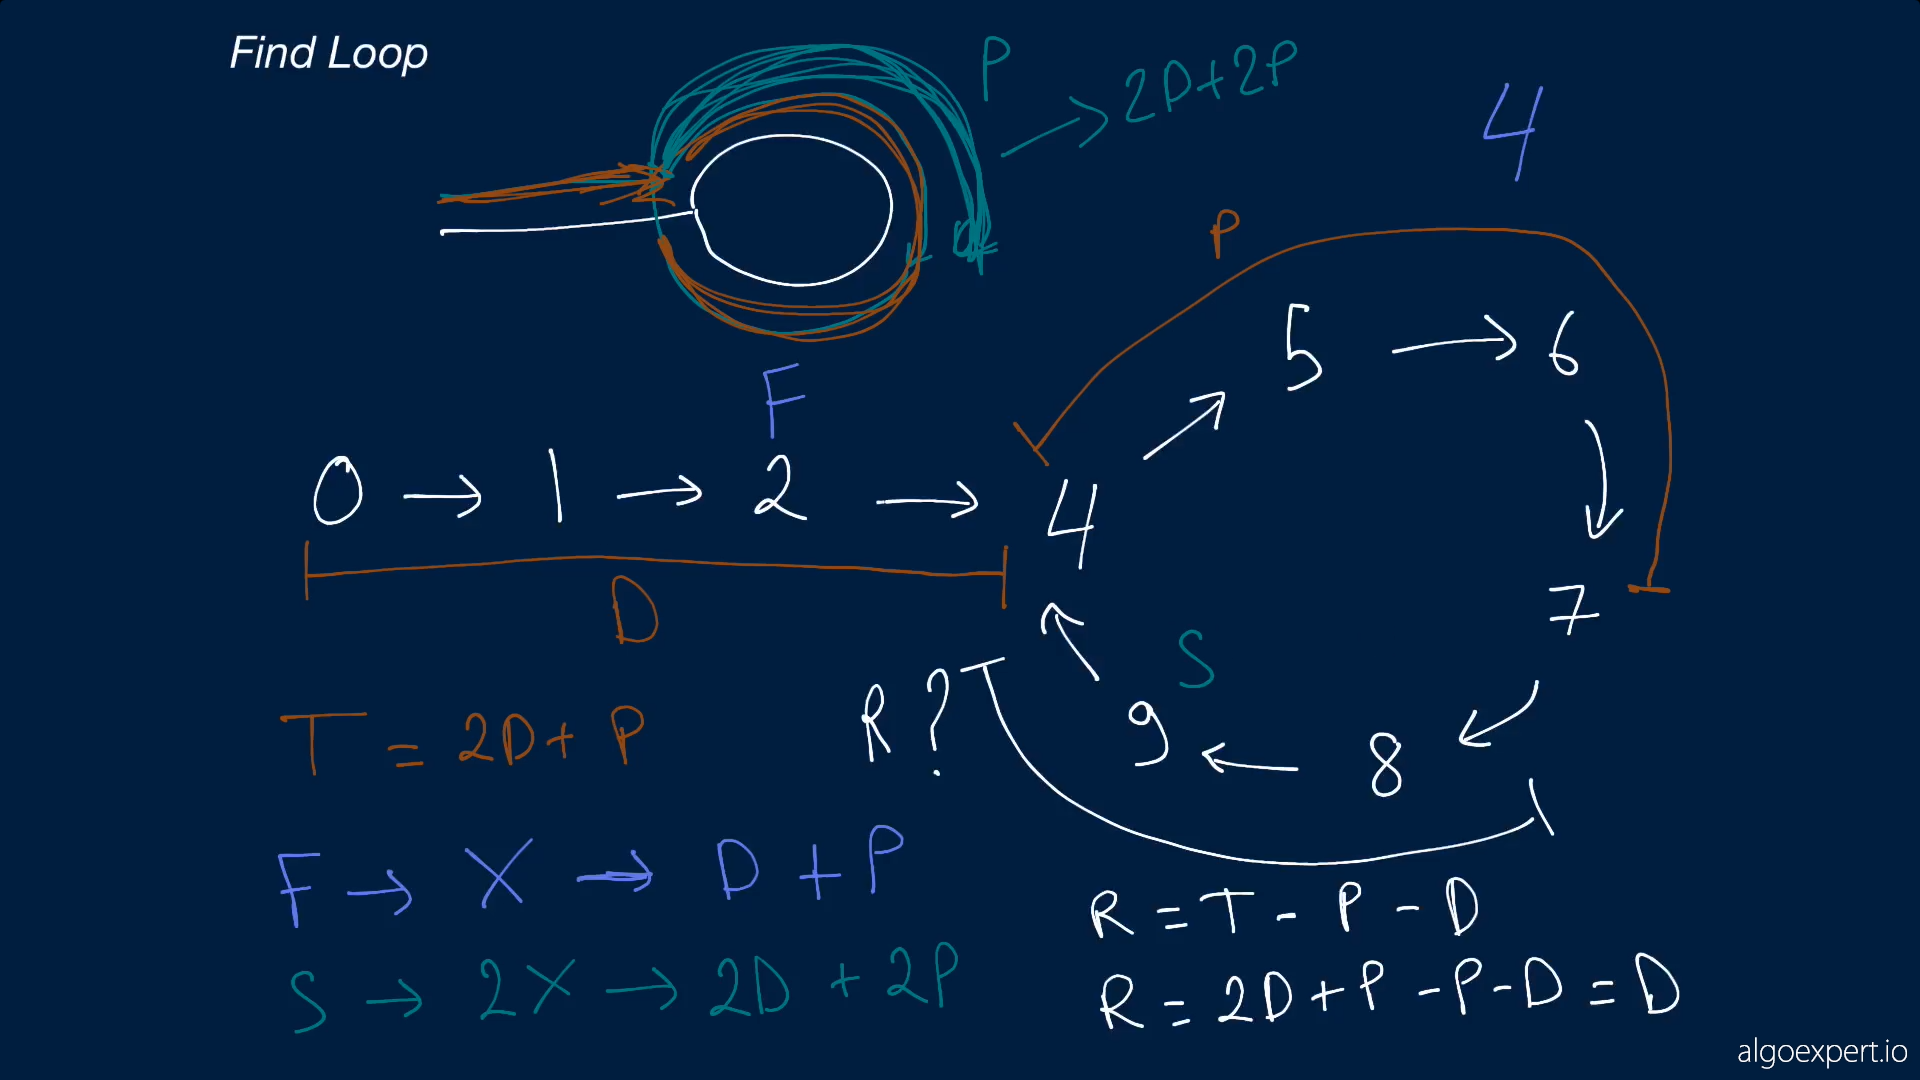 Find Loop
P → 2D+2P
4
P
F
5 → 6
0 → 1 → 2 → 4
7
D
S
R?
9 ← 8
T = 2D + P
F → X → D + P
S → 2X → 2D + 2P
R = T - P - D
R = 2D + P - P - D = D
algoexpert.io